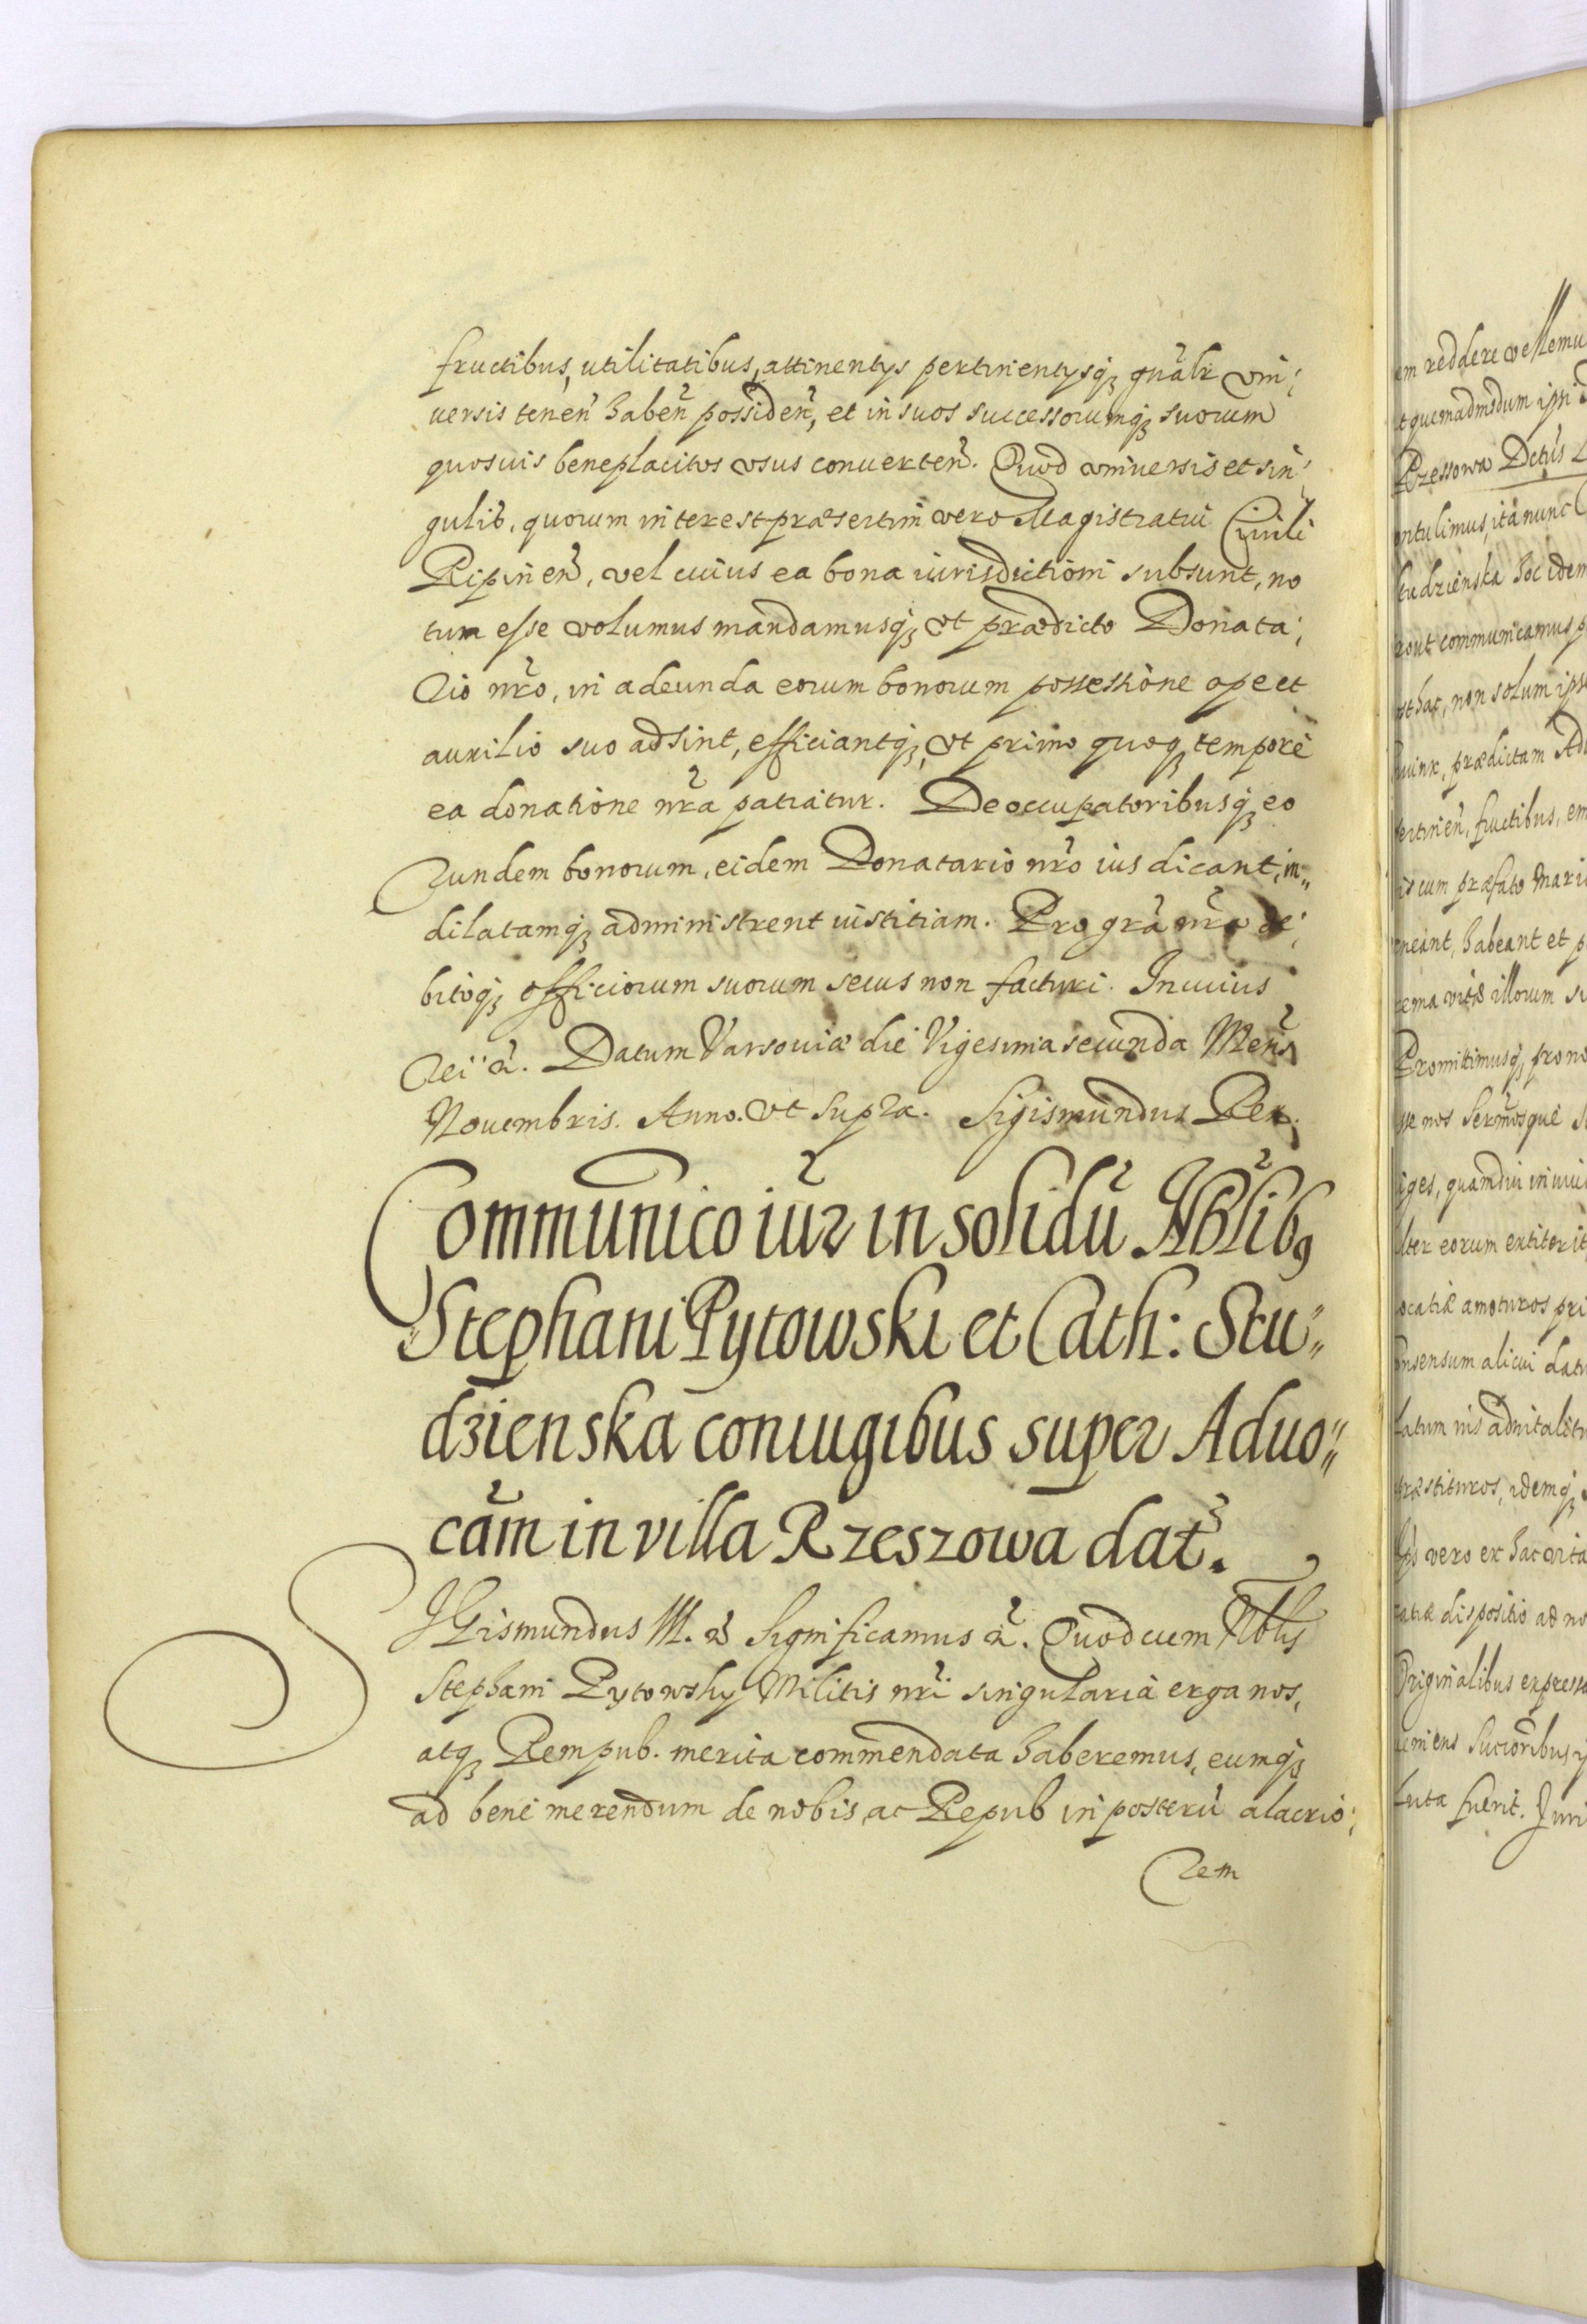 fructibus, utilitatibus, attinentys pertinentysq3 gnãlr vni:
uersis tenen̄ haben̄ possiden̄, et in suos successorumq3 suorum
quosuis beneplacitos vsus conuerten̄. Quod vniuersis et sin:
gulib. quorum interest præsertim vero Magistratui Ciuili
Ripinen̄, vel cuius ea bona iurisdictioni subsunt, no
tum esse volumus mandamusq3 vt prædicto Donata:
rio nr̃o, in adeunda eorum bonorum possessione ope et
auxilio suo adsint, efficiantq3, vt primo quoq3 tempore
ea donatione nr̃a patiatur. De occupatoribusq3 eo
rundem bonorum, eidem Donatario nr̃o ius dicant, in„
dilatamq3 administrent iustitiam. Pro gr̃a nr̃a de:
bitoq3 officiorum suorum secus non facturi. In cuius
rei &. Datum Varsouiæ die Vigesima secunda Mens̃
Nouembris. Anno. vt supra. Sigismundus Rex.
Communico iur̃ in solidũ Nblib9
Stephani Pytowski et Cath: Stu„
dzienska coniugibus super Aduo„
cãm in villa Rzeszowa dat̃.
SIGismundus III. & Significamus &. Quod cum Nblis
Stephani Pytowsky Militis nr̃i singularia erga nos,
atq3 Rempub. merita commendata haberemus, eumq3
ad bene merendum de nobis, ac Repub in posterũ alacrio:
rem
em reddere vellemu
t quemadmodum ipsi
Rzessowa Dctus
ntulimus, ita nunc
tudzienska hoc idem
rout communicamus p
sthac, non solum ips
uinr, prædictam Ad
ertinen̄, fructibus, em
is cum præfato Mari
neant, habeant et p
rema vitæ illorum su
Promittimusq3, pro no
se nos Serm̃osque S
iges, quamdiu in viui
lter eorum extiterit
ocatiæ amoturos pri
nsensum alicui datu
atum ius aduitalitu
ræstituros, idemq3
s vero ex hac vita
atiæ dispositio ad no
Originalibus expressa
imiens Succõribus
luta fuerit. Juri